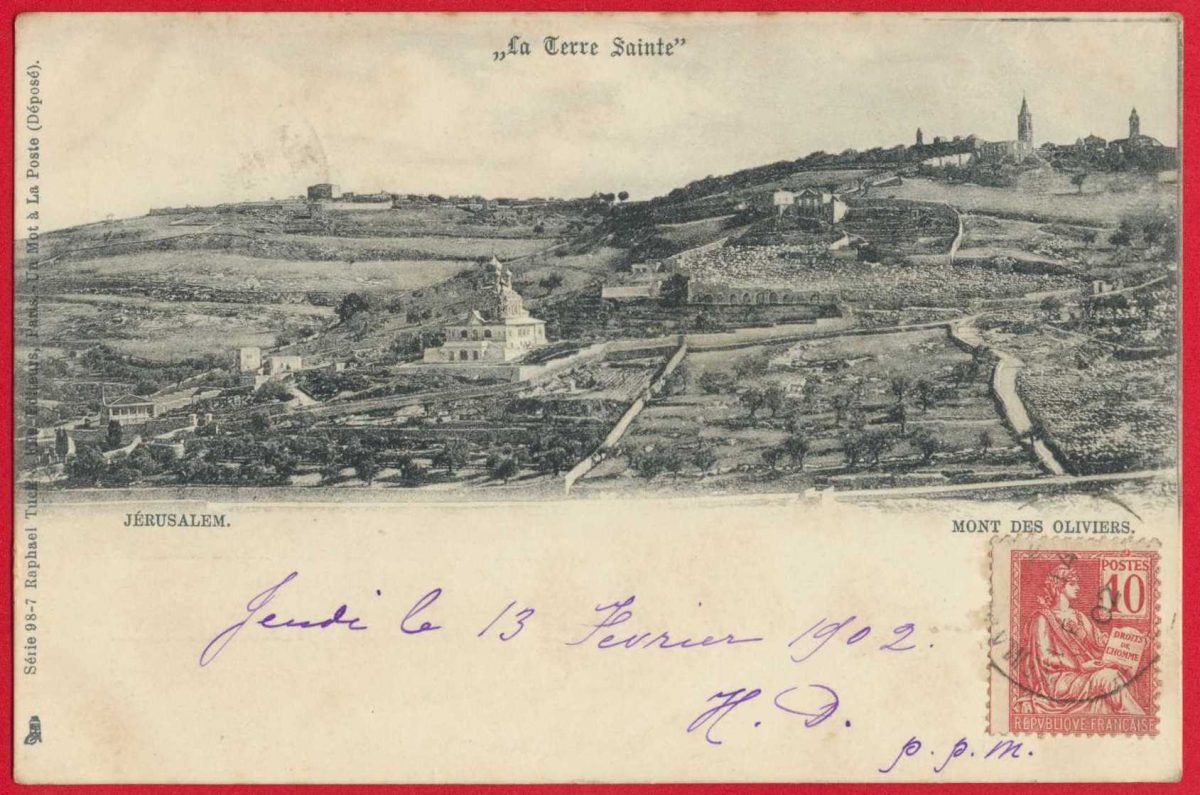 „La Terre Sainte”
Série 98-7 Raphael Tuck Fils Editeurs, Paris. Un Mot à La Poste (Déposé).
JÉRUSALEM.
MONT DES OLIVIERS.
POSTES
10
DROITS
DE
L'HOMME
REPVBLIQUE FRANÇAISE
02
Jeudi le 13 Fevrier 1902.
H. D.
p. p. m.